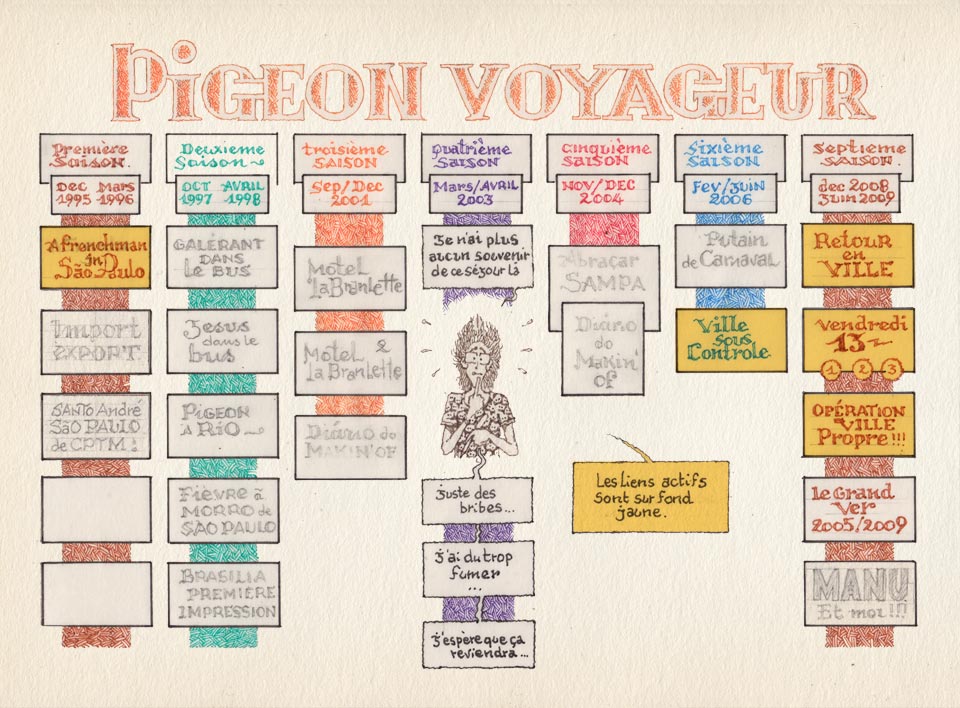 PIGEON VOYAGEUR
Première
SAISON.
DEC MARS
1995 1996
A frenchman
in
São Paulo
Import
EXPORT
SANTO André
SÃO PAULO
de CPTM!
Deuxième
SAISON
OCT AVRIL
1997 1998
GALÉRANT
DANS
LE BUS
Jesus
dans le
bus
PIGEON
À RIO
Fièvre à
MORRO de
SAO PAULO
BRASILIA
PREMIERE
IMPRESSION
troisième
SAISON
Sep/Dec
2001
Motel
la Branlette
Motel 2
la Branlette
Diário do
MAKIN'OF
quatrième
SAISON
Mars/AVRIL
2003
Je n'ai plus
aucun souvenir
de ce séjour là
juste des
bribes...
j'ai du trop
fumer
...
j'espère que ça
reviendra...
cinquième
SAISON
NOV/DEC
2004
Abraçar
SAMPA
Diário
do
Makin'
of
Sixième
SAISON
Fev/Juin
2006
Putain
de Carnaval
Ville
sous
Controle
Les liens actifs
sont sur fond
jaune.
Septième
SAISON.
dec 2008
Juin 2009
Retour
en
VILLE
Vendredi
13
1 2 3
OPÉRATION
VILLE
Propre!!!
Le Grand
Ver
2005/2009
MANU
Et moi!!!